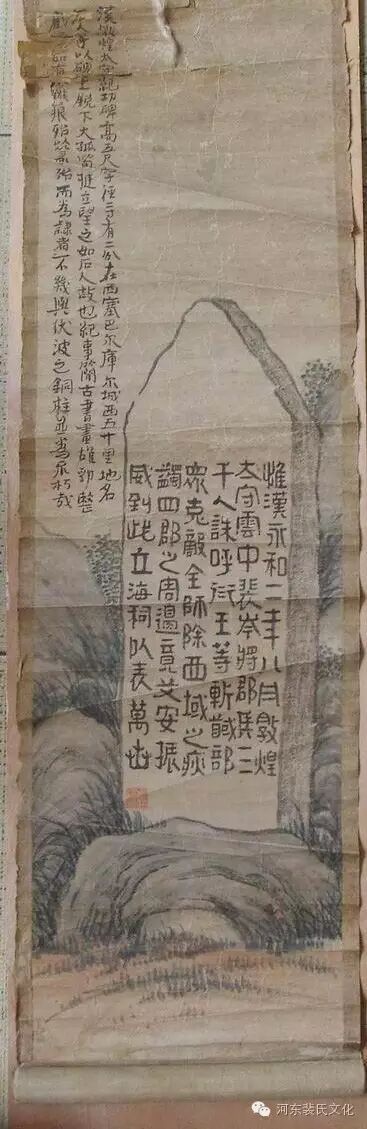 漢敦煌太守紀功碑高五尺字徑二寸有二分在西塞巴尔庫尔城西五十里地名
石人子以碑上銳下大孤筍挺立望之如石人故也紀事簡古書畫雄勁整
如有鐵痕殆而為隸者不幾與伏波之銅柱並為不朽哉
惟漢永和二年八月敦煌
太守雲中裴岑將郡兵三
千人誅呼衍王等斬馘部
衆克敵全師除西域之疢
蠲四郡之周邊竟艾安振
威到此立海祠以表萬世
河东裴氏文化